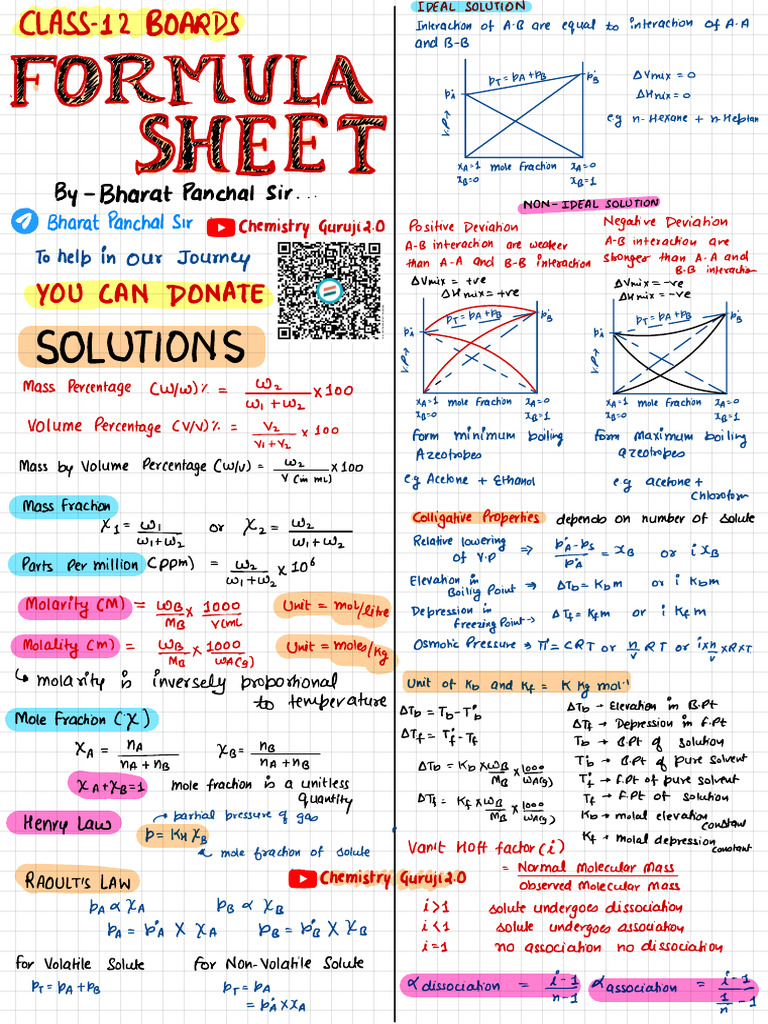 CLASS-12 BOARDS
FORMULA
SHEET
By - Bharat Panchal Sir...
Bharat Panchal Sir
Chemistry Guruji 2.0
To help in our Journey
YOU CAN DONATE
SOLUTIONS
Mass Percentage (w/w)% = w₂/(w₁+w₂) × 100
Volume Percentage (V/V)% = V₂/(V₁+V₂) × 100
Mass by Volume Percentage (w/v) = w₂/V(in mL) × 100
Mass fraction
χ₁ = w₁/(w₁+w₂) or χ₂ = w₂/(w₁+w₂)
Parts Per million (ppm) = w₂/(w₁+w₂) × 10⁶
Molarity (M) = wB/MB × 1000/V(mL) Unit = mol/litre
Molality (m) = wB/MB × 1000/wA(g) Unit = moles/kg
↳ molarity is inversely proportional
to temperature
Mole Fraction (χ)
χA = nA/(nA+nB) χB = nB/(nA+nB)
χA+χB=1 mole fraction is a unitless
quantity
Henry Law
partial pressure of gas
p = KH χB
mole fraction of solute
RAOULT'S LAW
Chemistry Guruji 2.0
pA ∝ χA pB ∝ χB
pA = p°A × χA pB = p°B × χB
for Volatile Solute for Non-Volatile Solute
pT = pA + pB pT = pA
= p°A × χA
IDEAL SOLUTION
Interaction of A-B are equal to interaction of A-A
and B-B
pT = pA + pB
p°A
p°B
V.P→
xA=1 mole fraction xA=0
xB=0 xB=1
ΔVmix = 0
ΔHmix = 0
eg n-Hexane + n-Heptan
NON-IDEAL SOLUTION
Positive Deviation
A-B interaction are weaker
than A-A and B-B interaction
ΔVmix = +ve
ΔHmix = +ve
pT = pA + pB
p°A
p°B
V.P→
xA=1 mole fraction xA=0
xB=0 xB=1
form minimum boiling
Azeotropes
eg Acetone + Ethanol
Negative Deviation
A-B interaction are
stronger than A-A and
B-B interaction
ΔVmix = -ve
ΔHmix = -ve
pT = pA + pB
p°A
p°B
V.P→
xA=1 mole fraction xA=0
xB=0 xB=1
form maximum boiling
azeotropes
eg acetone +
Chloroform
Colligative Properties depends on number of solute
Relative lowering
of V.P ⇒ (p°A - ps)/p°A = xB or i xB
Elevation in
Boiling Point → ΔTb = Kb m or i Kb m
Depression in
freezing Point → ΔTf = Kf m or i Kf m
Osmotic Pressure → π = CRT or n/v RT or i×n/v × R×T
Unit of Kb and Kf = K Kg mol⁻¹
ΔTb = Tb - T°b
ΔTf = T°f - Tf
ΔTb = Kb × wB/MB × 1000/wA(g)
ΔTf = Kf × wB/MB × 1000/wA(g)
ΔTb → Elevation in B.Pt
ΔTf → Depression in F.Pt
Tb → B.Pt of solution
T°b → B.Pt of pure solvent
T°f → F.Pt of pure solvent
Tf → F.Pt of solution
Kb → molal elevation
constant
Kf → molal depression
constant
Vanit Hoff factor (i)
= Normal Molecular Mass
Observed Molecular Mass
i>1 solute undergoes dissociation
i<1 solute undergoes association
i=1 no association no dissociation
α dissociation = (i-1)/(n-1)
α association = (i-1)/(1/n - 1)